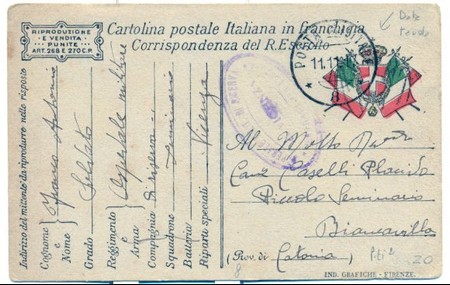 RIPRODUZIONE
E VENDITA
PUNITE
ART. 268 E 270 C.P.
Cartolina postale Italiana in franchigia
Corrispondenza del R. Esercito
Data
POSTA
11.11
Indirizzo del mittente da riprodurre nella risposta
Cognome
e
Nome
Antonio
Grado
Soldato
Reggimento
o
Arma
Ospedale militare
Compagnia
Squadrone
Seminario
Batteria
Riparti speciali
Vicenza
Al Molto Rev.
Can. Caselli Placido
Piccolo Seminario
Biancavilla
(Prov. di Catania)
20
8
IND. GRAFICHE - FIRENZE.